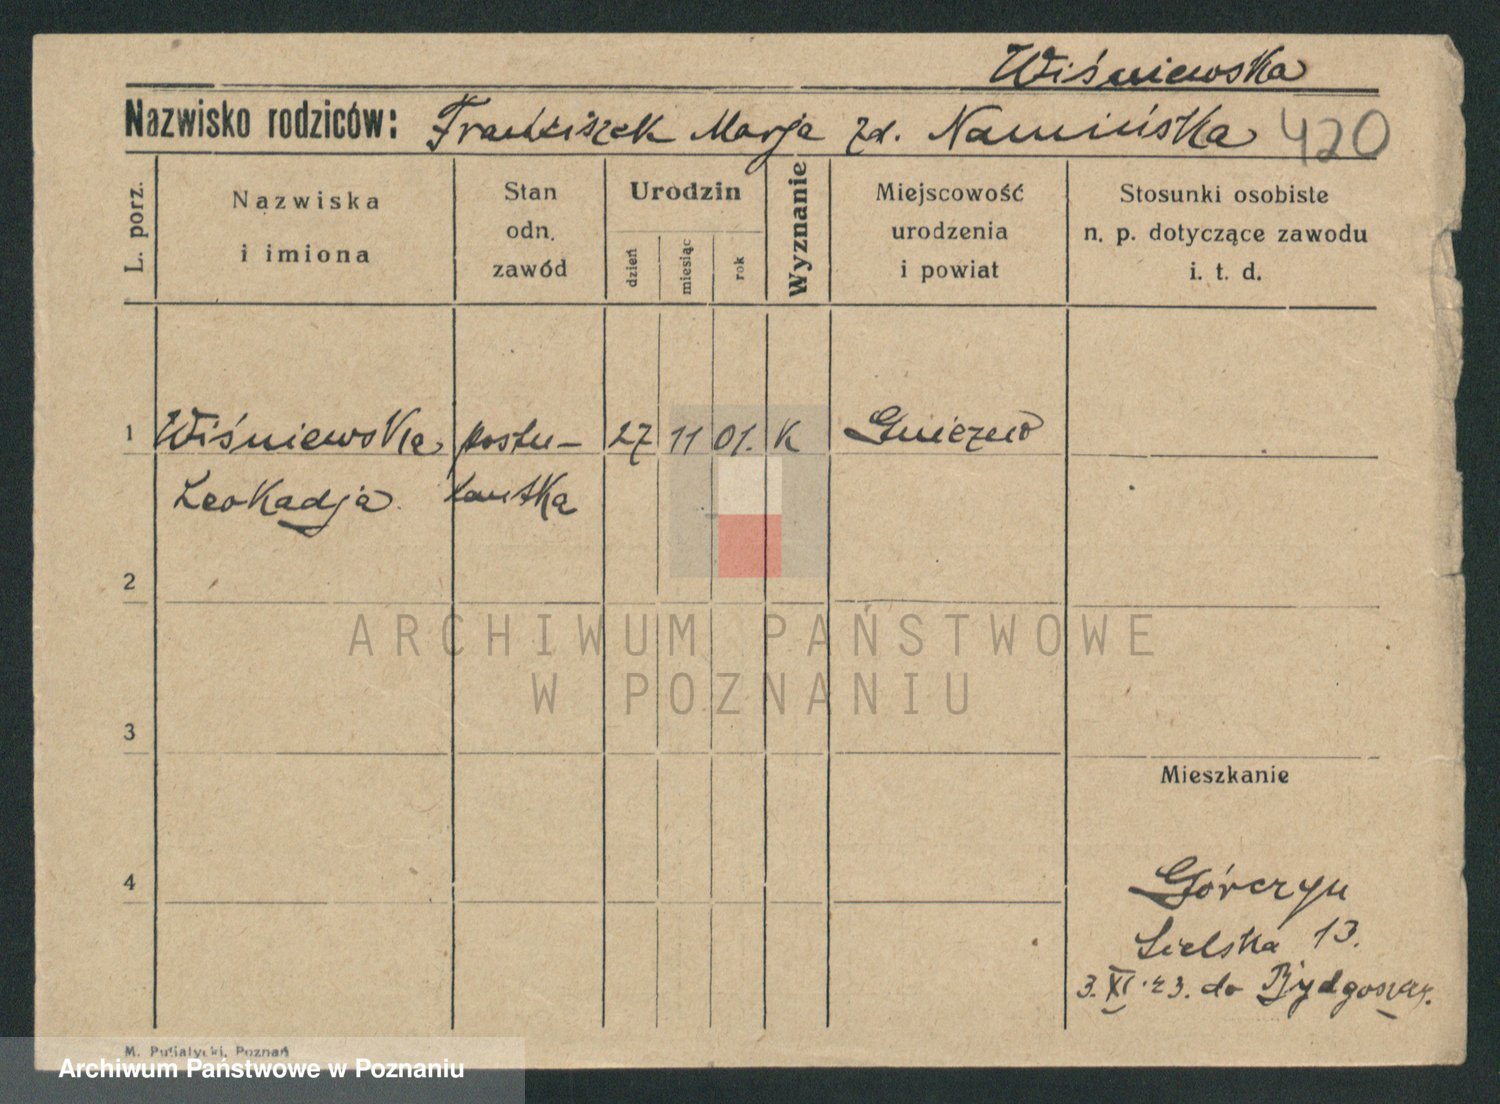 Wiśniewska
Nazwisko rodziców: Franciszek Marja zd. Namińska 420
L. porz.
Nazwiska
i imiona
Stan
odn.
zawód
Urodzin
dzień
miesiąc
rok
Wyznanie
Miejscowość
urodzenia
i powiat
Stosunki osobiste
n. p. dotyczące zawodu
i. t. d.
1 Wiśniewska postu- 27 11 01. K
Leokadja lantka
2
ARCHIWUM PAŃSTWOWE
W POZNANIU
3
Mieszkanie
4
Górczyn
Sielska 13.
3. XI. 23. do Bydgoszcz.
M. Putiatycki, Poznań
Archiwum Państwowe w Poznaniu